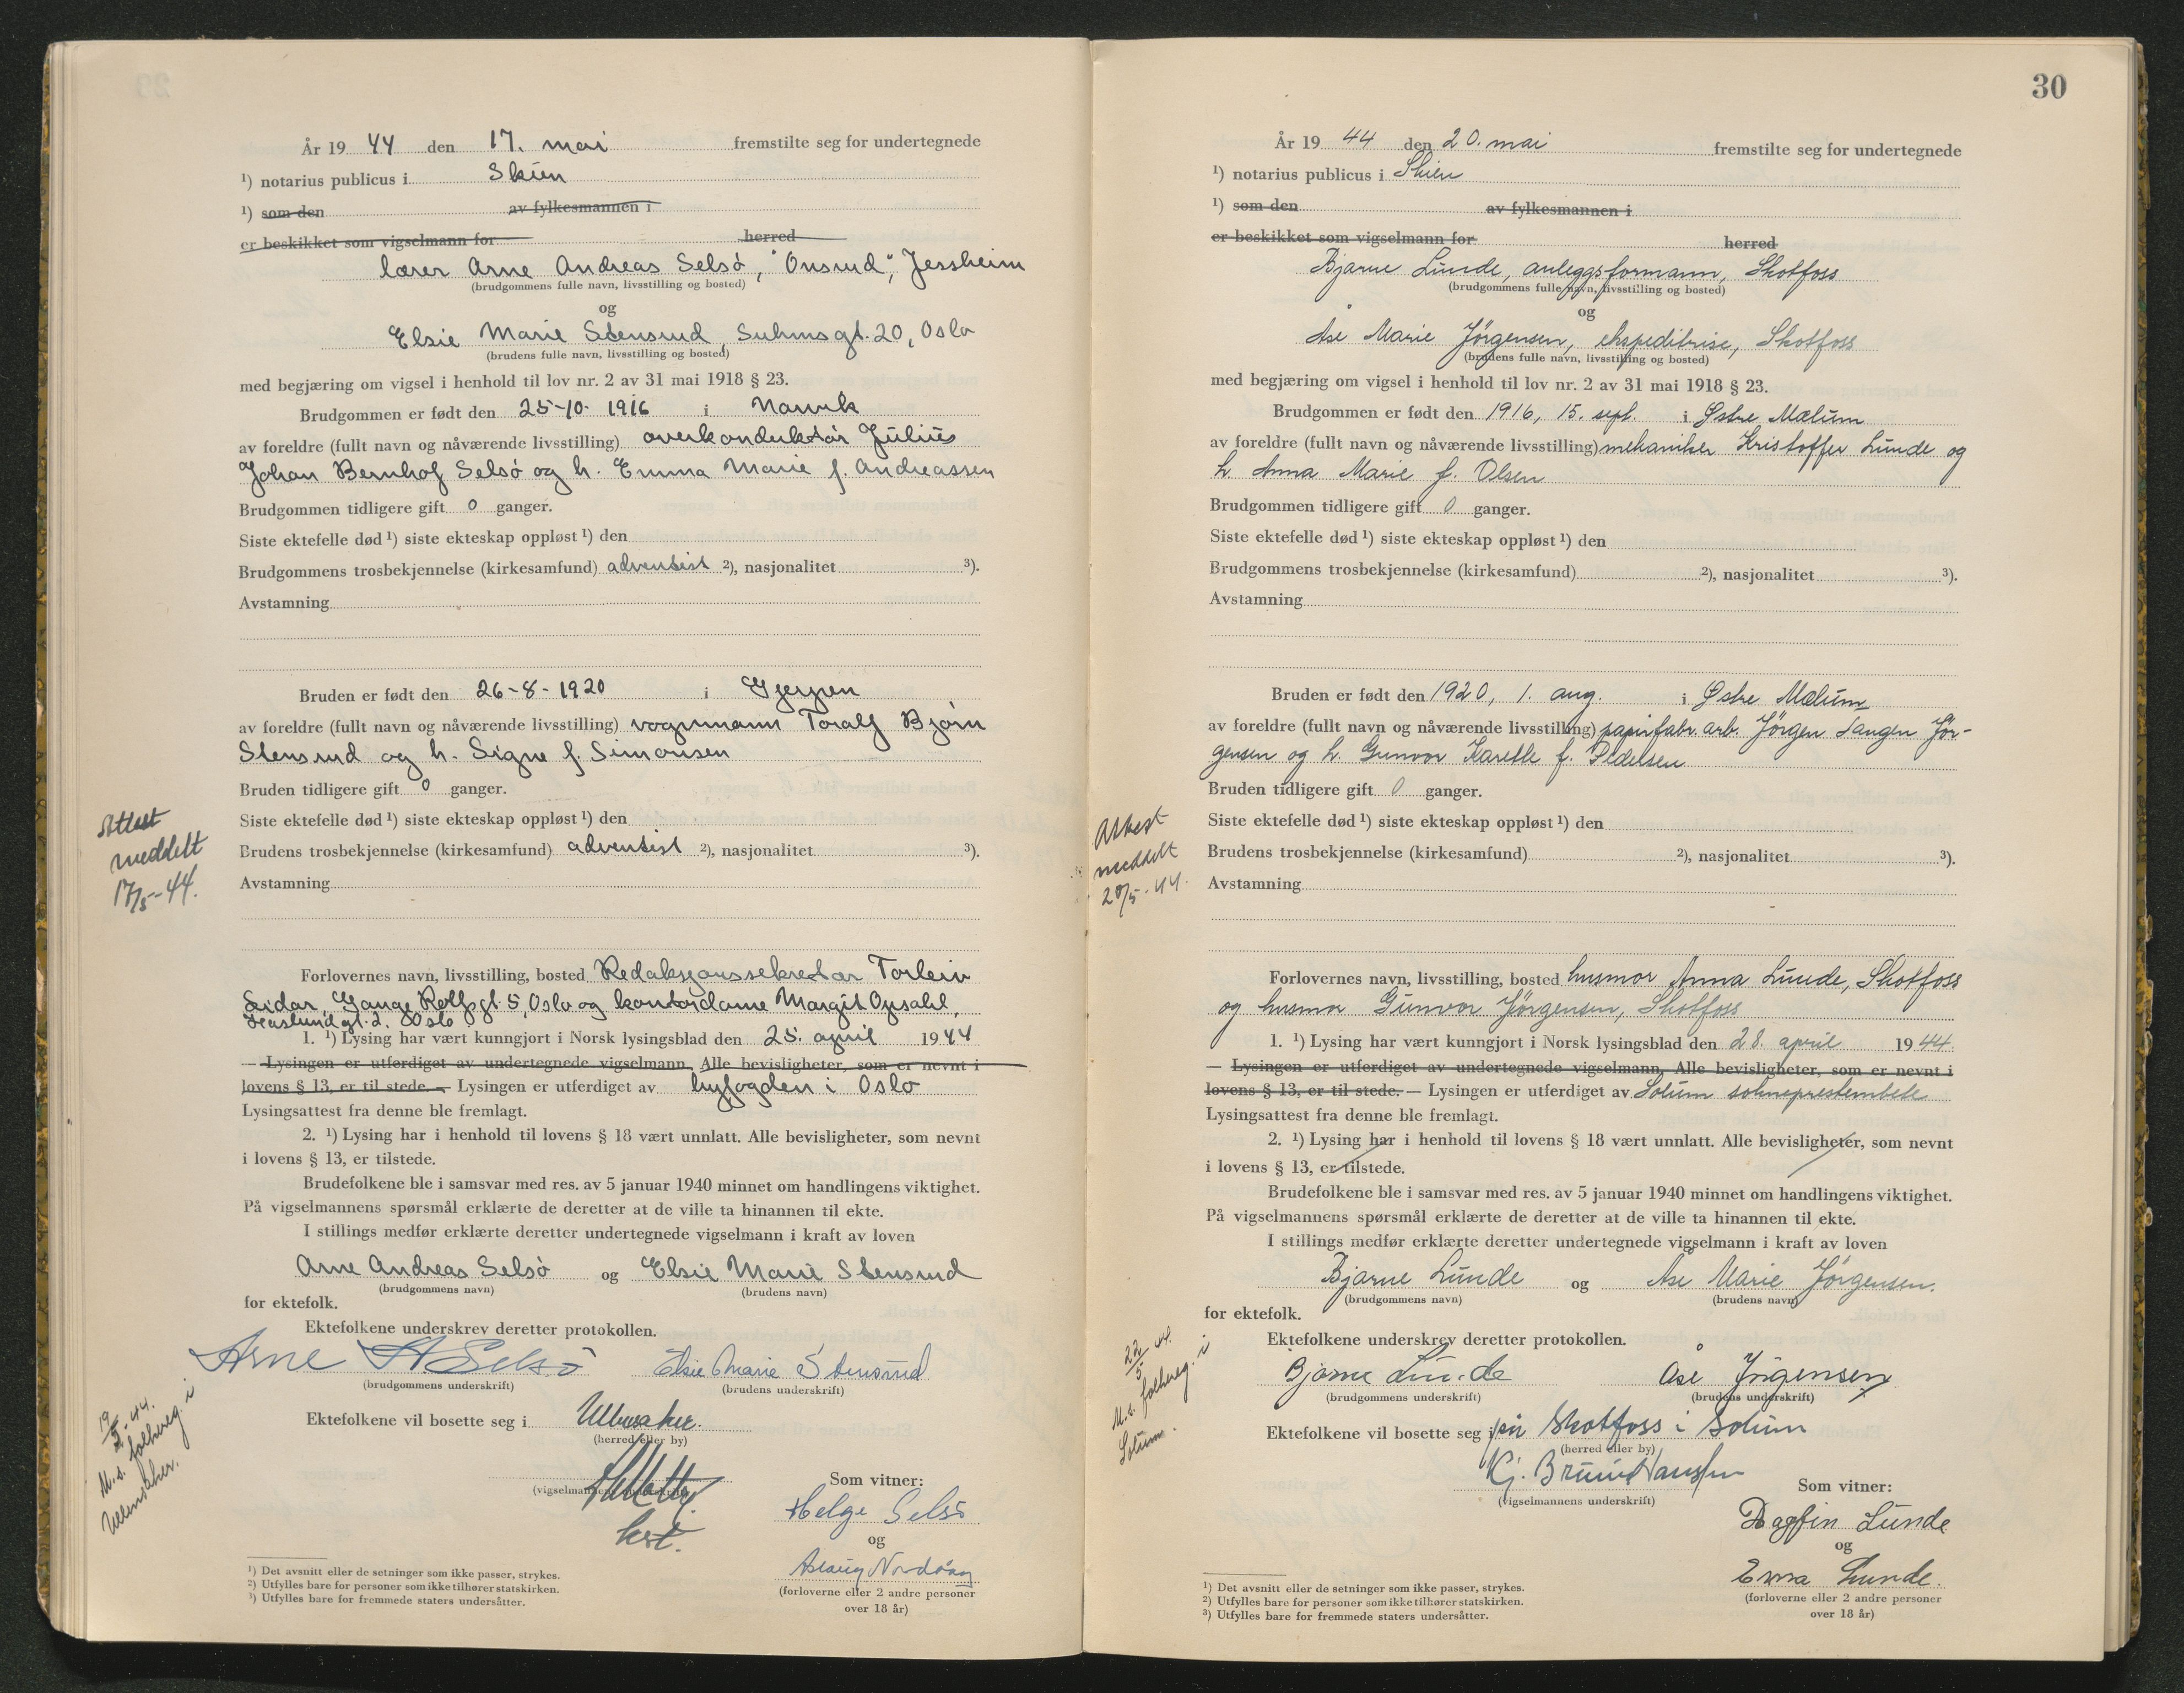 År 1944 den 17. mai fremstilte seg for undertegnede
¹) notarius publicus i Skien
¹) som den av fylkesmannen i
er beskikket som vigselmann for herred
lærer Arne Andreas Selsö, "Onsrud", Jessheim
(brudgommens fulle navn, livsstilling og bosted)
og
Elsie Marie Stensrud, Suhmsgt. 20, Oslo
(brudens fulle navn, livsstilling og bosted)
med begjæring om vigsel i henhold til lov nr. 2 av 31 mai 1918 § 23.
Brudgommen er født den 25-10-1916 i Narvik
av foreldre (fullt navn og nåværende livsstilling) overkonduktör Julius
Johan Bernhof Selsö og h. Emma Marie f. Andreassen
Brudgommen tidligere gift 0 ganger.
Siste ektefelle død ¹) siste ekteskap oppløst ¹) den
Brudgommens trosbekjennelse (kirkesamfund) adventist ²), nasjonalitet ³).
Avstamning
Bruden er født den 26-8-1920 i Gjerpen
av foreldre (fullt navn og nåværende livsstilling) vognmann Toralf Bjørn
Stensrud og h. Signe f. Simonsen
Bruden tidligere gift 0 ganger.
Siste ektefelle død ¹) siste ekteskap oppløst ¹) den
Brudens trosbekjennelse (kirkesamfund) adventist ²), nasjonalitet ³).
Avstamning
Attest
meddelt
17/5-44.
Forlovernes navn, livsstilling, bosted Redaksjonssekretær Torlein
Gange Rolfsgt. 5, Oslo og kontordame Margit Opsahl,
Haslundgt. 2. Oslo
1. ¹) Lysing har vært kunngjort i Norsk lysingsblad den 25. april 1944
— Lysingen er utferdiget av undertegnede vigselmann. Alle bevisligheter, som er nevnt i
lovens § 13, er til stede. — Lysingen er utferdiget av byfogden i Oslo
Lysingsattest fra denne ble fremlagt.
2. ¹) Lysing har i henhold til lovens § 18 vært unnlatt. Alle bevisligheter, som nevnt
i lovens § 13, er tilstede.
Brudefolkene ble i samsvar med res. av 5 januar 1940 minnet om handlingens viktighet.
På vigselmannens spørsmål erklærte de deretter at de ville ta hinannen til ekte.
I stillings medfør erklærte deretter undertegnede vigselmann i kraft av loven
Arne Andreas Selsö og Elsie Marie Stensrud
(brudgommens navn) (brudens navn)
for ektefolk.
Ektefolkene underskrev deretter protokollen.
Arne A Selsö Elsie Marie Stensrud
(brudgommens underskrift) (brudens underskrift)
Ektefolkene vil bosette seg i Ullensaker.
(herred eller by)
19/5-44.
M.s. folkereg. i
Ullensaker.
(vigselmannens underskrift)
Som vitner:
Helge Selsö
og
Aslaug
(forloverne eller 2 andre personer
over 18 år)
¹) Det avsnitt eller de setninger som ikke passer, strykes.
²) Utfylles bare for personer som ikke tilhører statskirken.
³) Utfylles bare for fremmede staters undersåtter.
30
År 1944 den 20. mai fremstilte seg for undertegnede
¹) notarius publicus i Skien
¹) som den av fylkesmannen i
er beskikket som vigselmann for herred
Bjarne Lunde, anleggsformann, Skotfoss
(brudgommens fulle navn, livsstilling og bosted)
og
Åse Marie Jørgensen, ekspeditrise, Skotfoss
(brudens fulle navn, livsstilling og bosted)
med begjæring om vigsel i henhold til lov nr. 2 av 31 mai 1918 § 23.
Brudgommen er født den 1916, 15. sept. i Østre Mælum
av foreldre (fullt navn og nåværende livsstilling) mekaniker Kristoffer Lunde og
h. Anna Marie f. Olsen
Brudgommen tidligere gift 0 ganger.
Siste ektefelle død ¹) siste ekteskap oppløst ¹) den
Brudgommens trosbekjennelse (kirkesamfund) ²), nasjonalitet ³).
Avstamning
Bruden er født den 1920, 1. aug. i Østre Mælum
av foreldre (fullt navn og nåværende livsstilling) papirfabr. arb. Jørgen Langen Jør-
gensen og h. Gunvor f. Pedersen
Bruden tidligere gift 0 ganger.
Siste ektefelle død ¹) siste ekteskap oppløst ¹) den
Brudens trosbekjennelse (kirkesamfund) ²), nasjonalitet ³).
Avstamning
Attest
meddelt
20/5-44.
Forlovernes navn, livsstilling, bosted husmor Anna Lunde, Skotfoss
og husmor Gunvor Jørgensen, Skotfoss
1. ¹) Lysing har vært kunngjort i Norsk lysingsblad den 28. april 1944.
— Lysingen er utferdiget av undertegnede vigselmann, Alle bevisligheter, som er nevnt i
lovens § 13, er til stede. — Lysingen er utferdiget av Solum sokneprestembete
Lysingsattest fra denne ble fremlagt.
2. ¹) Lysing har i henhold til lovens § 18 vært unnlatt. Alle bevisligheter, som nevnt
i lovens § 13, er tilstede.
Brudefolkene ble i samsvar med res. av 5 januar 1940 minnet om handlingens viktighet.
På vigselmannens spørsmål erklærte de deretter at de ville ta hinannen til ekte.
I stillings medfør erklærte deretter undertegnede vigselmann i kraft av loven
Bjarne Lunde og Åse Marie Jørgensen.
(brudgommens navn) (brudens navn)
for ektefolk.
Ektefolkene underskrev deretter protokollen.
Bjarne Lunde Åse Jørgensen
(brudgommens underskrift) (brudens underskrift)
Ektefolkene vil bosette seg i på Skotfoss i Solum
(herred eller by)
22/5 44.
M.s. folkereg. i
Solum.
Kj. Bruun Hanssen
(vigselmannens underskrift)
Som vitner:
Dagfin Lunde
og
Erna Lunde.
(forloverne eller 2 andre personer
over 18 år)
¹) Det avsnitt eller de setninger som ikke passer, strykes.
²) Utfylles bare for personer som ikke tilhører statskirken.
³) Utfylles bare for fremmede staters undersåtter.